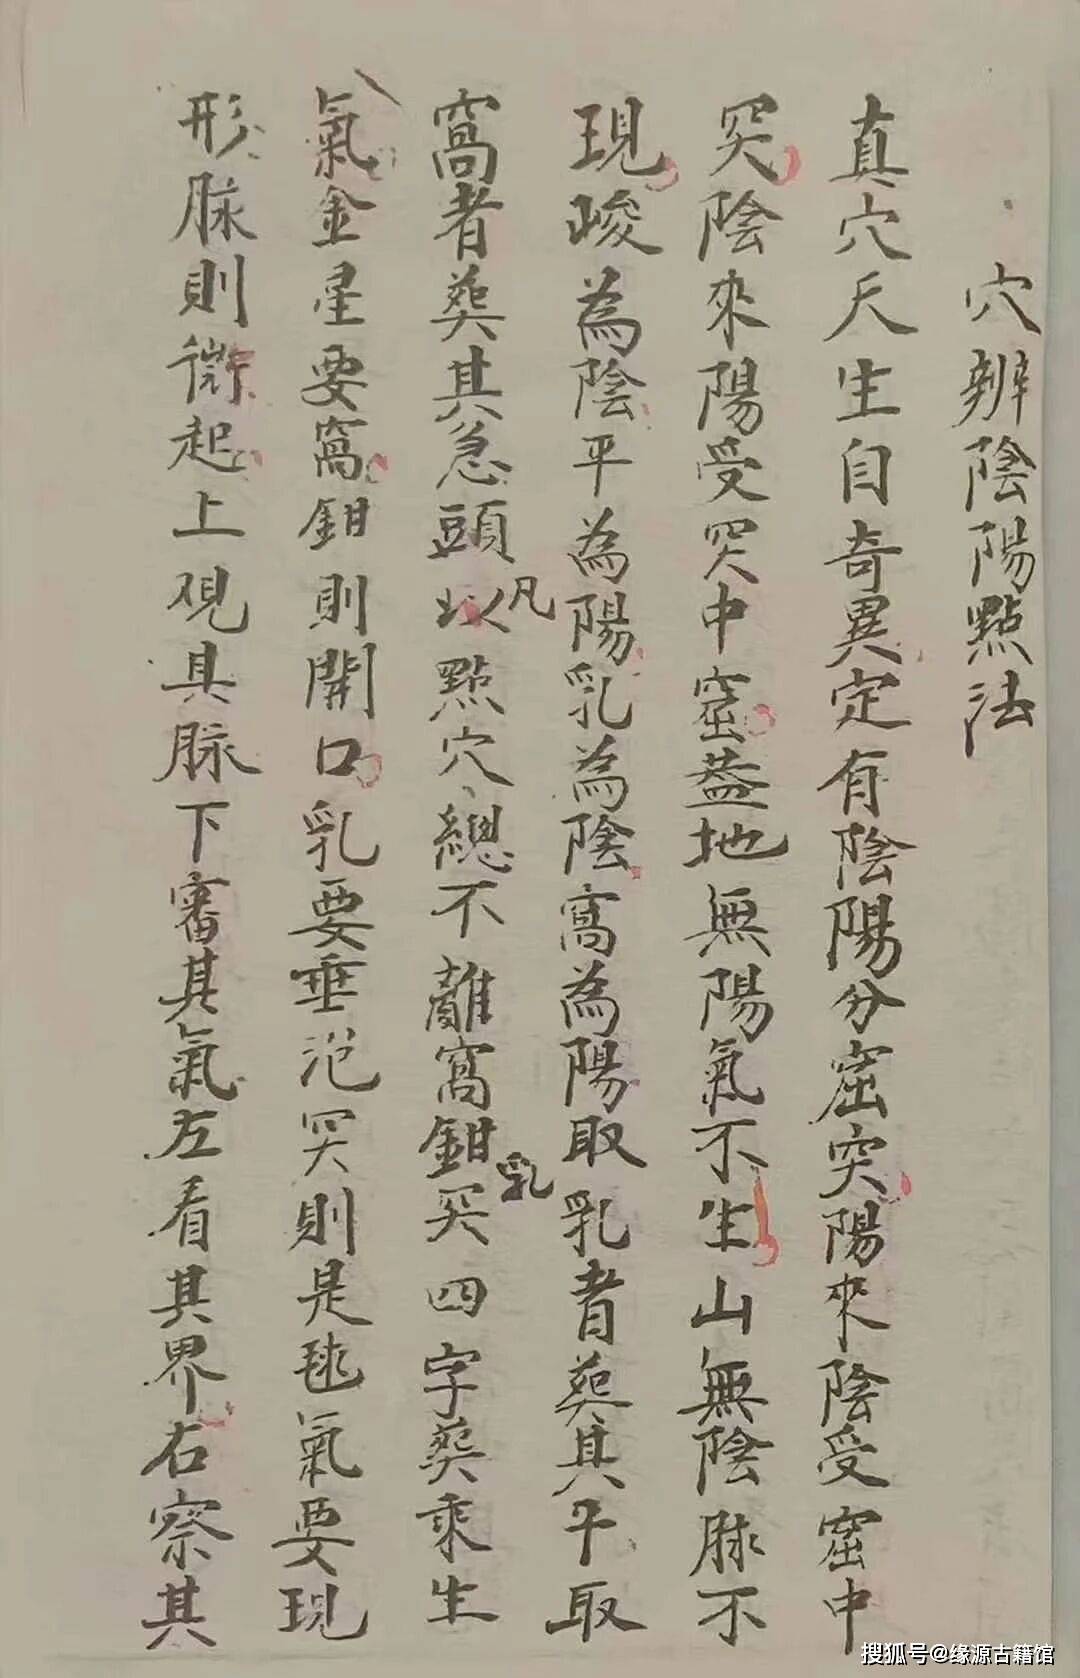 穴辨陰陽點法
真穴天生自奇異定有陰陽分窟突陽來陰受窟中
突陰來陽受突中窟葢地無陽氣不生山無陰脉不
現峻為陰平為陽乳為陰窩為陽取乳者葬其平取
窩者葬其急頭以凡點穴總不離窩鉗乳突四字葬乘生
氣金星要窩鉗則開口乳要垂泡突則是毬氣要現
形脉則微起上覌其脉下審其氣左看其界右察其
搜狐号@缘源古籍馆